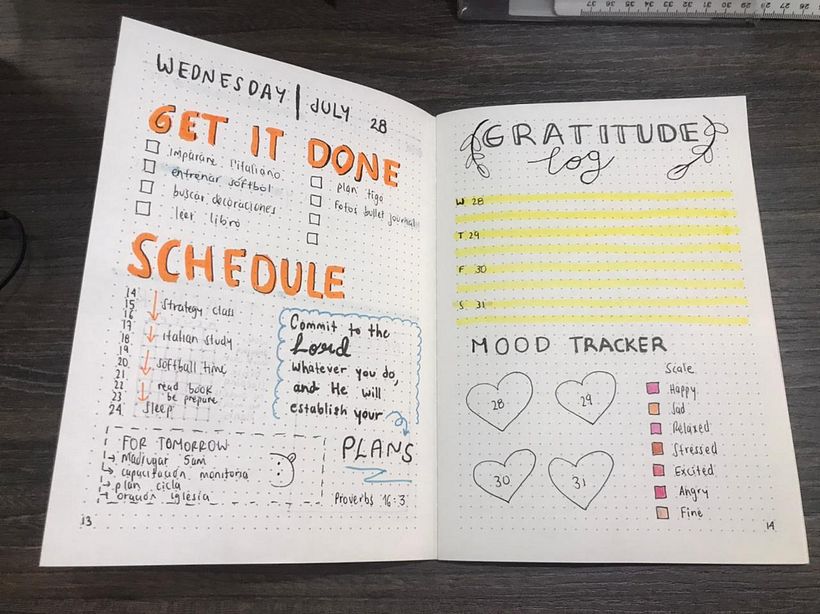 WEDNESDAY | JULY 28
GET IT DONE
imparare l'italiano
entrenar softbol
buscar decoraciones
leer libro
plan tigo
Fotos bullet journal!!
SCHEDULE
14
15 Strategy class
16
17
18 italian study
19
20 softball time
21
22 read book
23 be prepare
24 Sleep
Commit to the
Lord
whatever you do,
and He will
establish your
PLANS
Proverbs 16:3
FOR TOMORROW
→ Madrugar 5am
→ capacitación monitoria
→ plan cicla
→ oración iglesia
13
GRATITUDE
log
W 28
T 29
F 30
S 31
MOOD TRACKER
28
29
30
31
Scale
Happy
Sad
Relaxed
Stressed
Excited
Angry
Fine
14